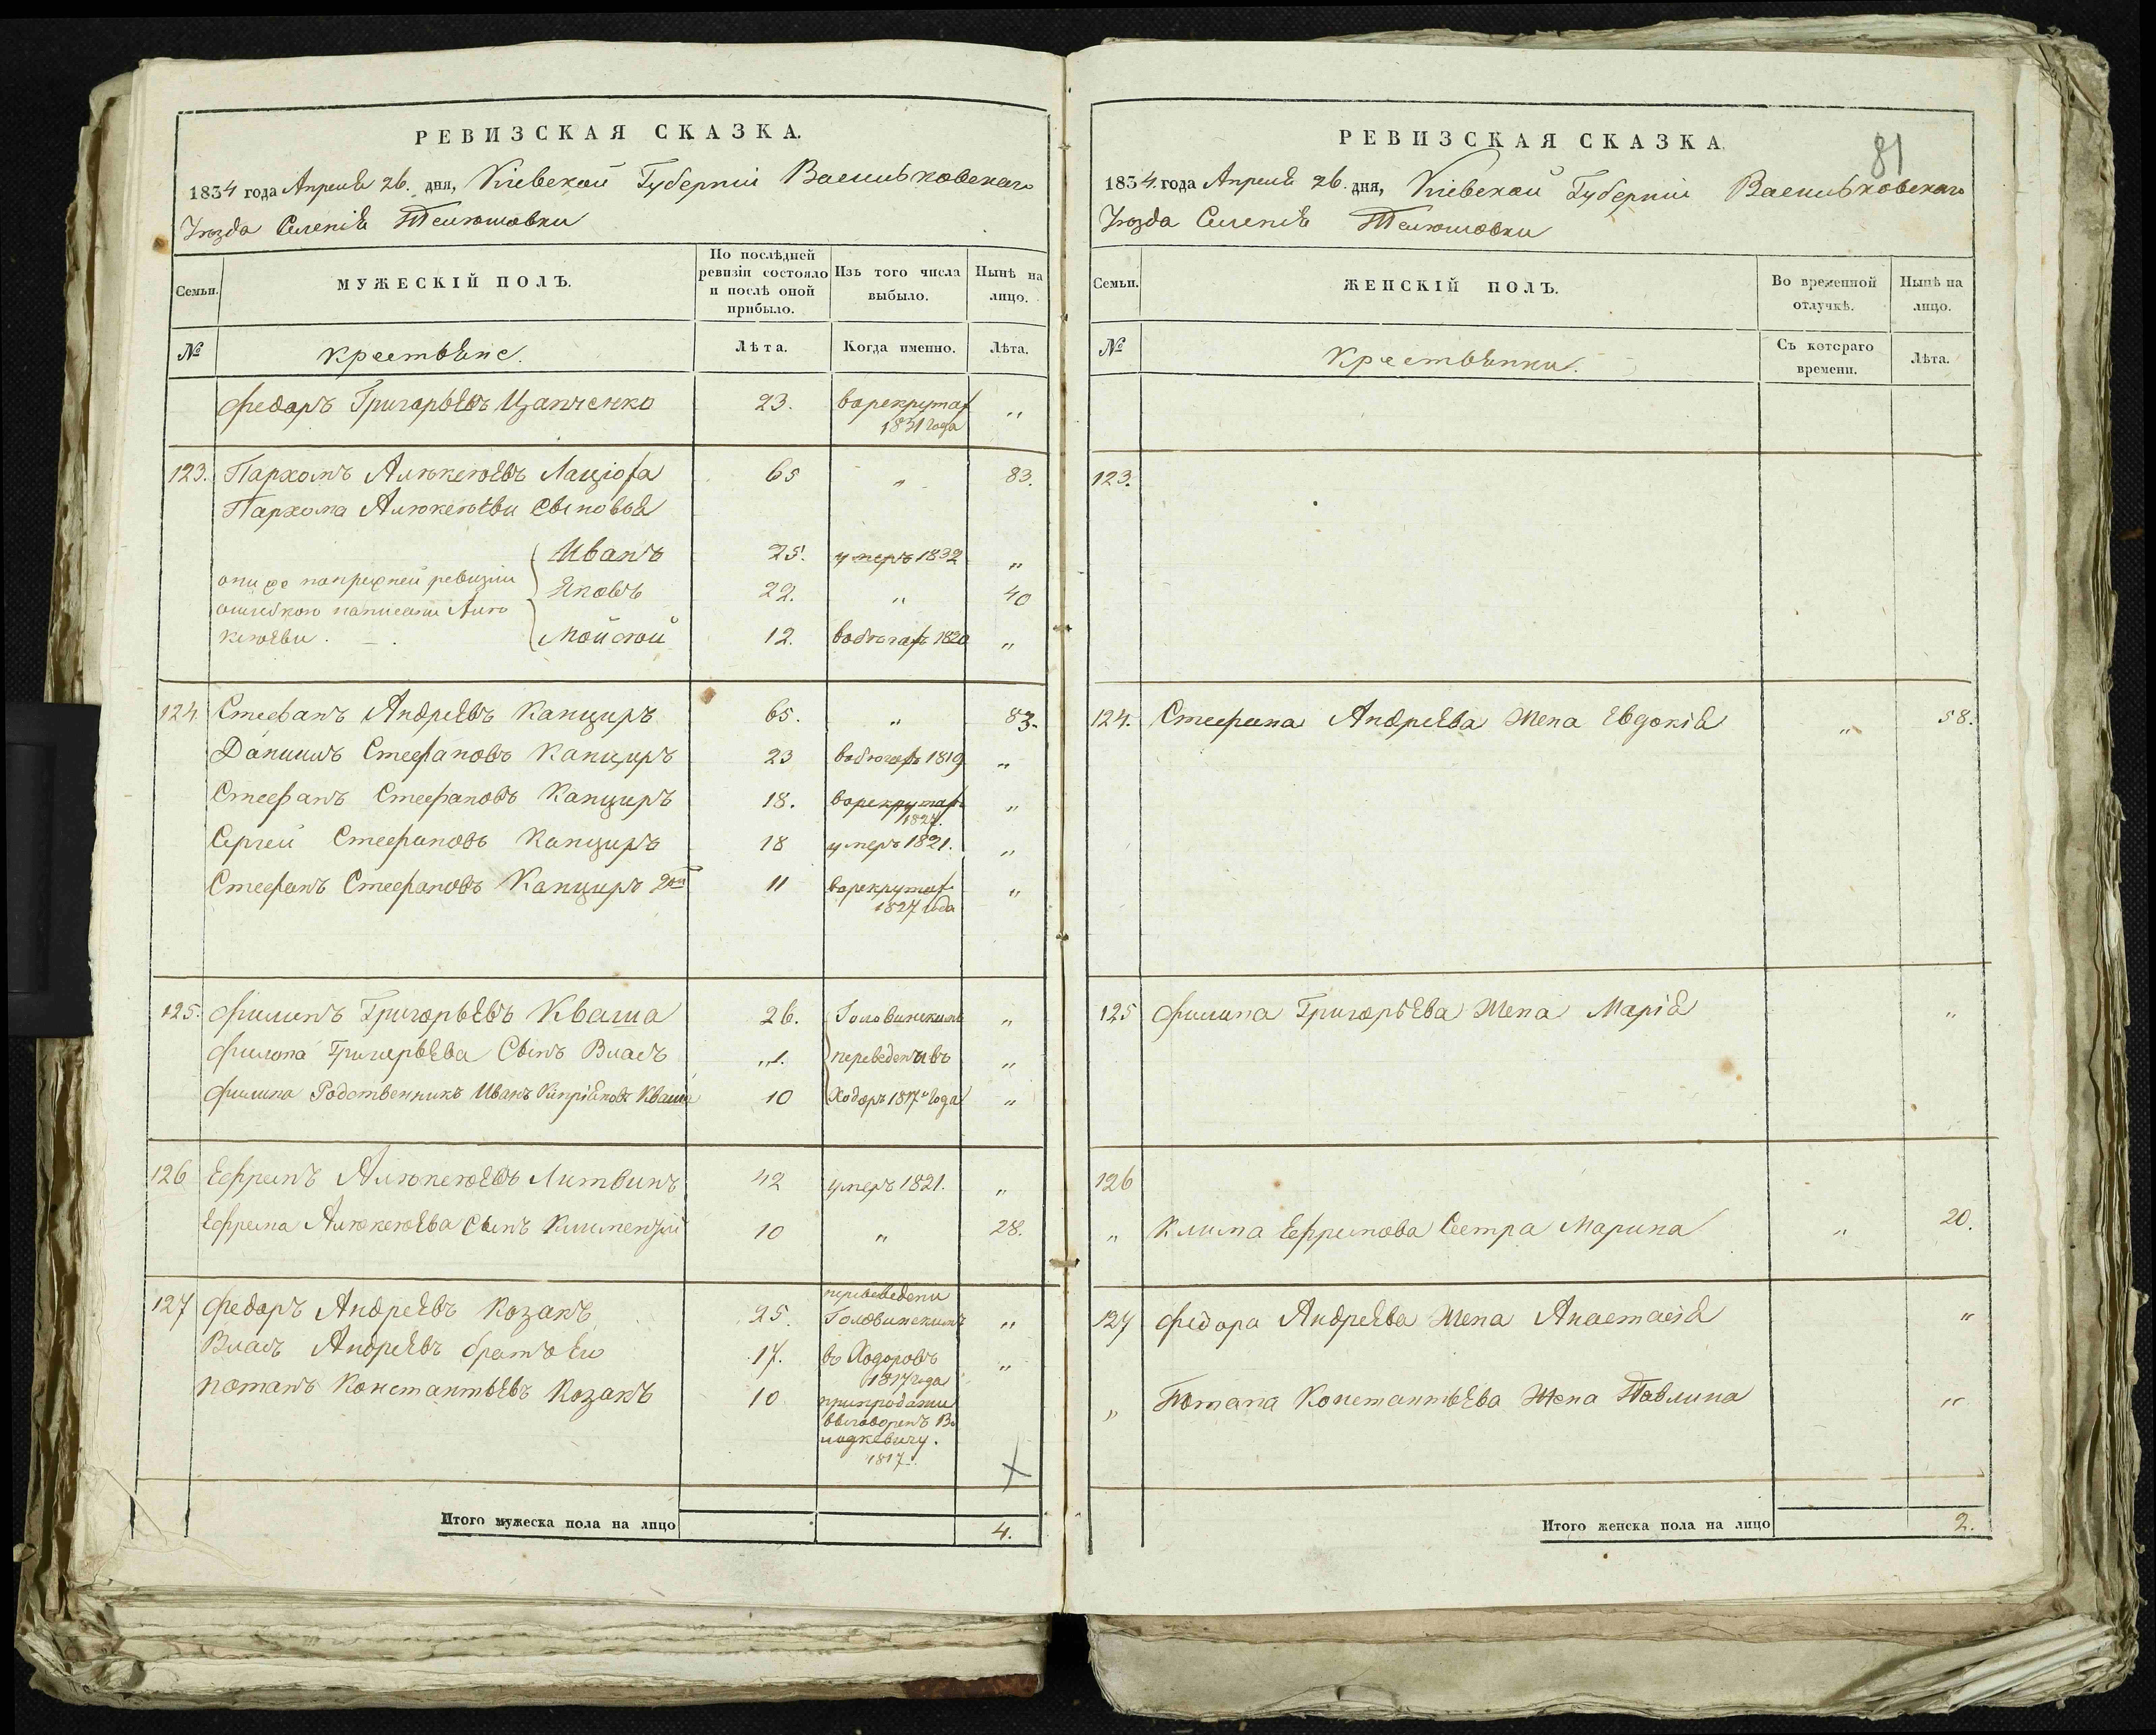 РЕВИЗСКАЯ СКАЗКА.
1834 года Апреля 26. дня, Кіевской Губерніи Васильковскаго
Уезда Селенія Телюшовки
Семьи.
МУЖЕСКІЙ ПОЛЪ.
По послѣдней ревизіи состояло и послѣ оной прибыло.
Изъ того числа выбыло.
Нынѣ на лицо.
№
крестьяне.
Лѣта.
Когда именно.
Лѣта.
Федоръ Григорьевъ Цапченко 23. ворекрутах „
1831 года
123. Пархомъ Алексеевъ 65 „ 83.
Пархома Алексееви Сыновья
Иванъ 25. умеръ 1832 „
они же попрежней ревизіи
Яковъ 22. „ 40
ошибкою написани Але
ксееви.
Мойсей 12. вобегах 1820 „
124. Стефанъ Андреевъ Канциръ 65. „ 83.
Данилъ Стефановъ Канциръ 23 вобегахъ 1819 „
Стефанъ Стефановъ Канциръ 18. ворекрутах „
1827.
Сергей Стефановъ Канциръ 18 умеръ 1821. „
Стефанъ Стефановъ Канциръ 2ой 11 ворекрутах „
1827 года
125. Филипъ Григорьевъ Кваша 26. Головинскимъ „
Филипа Григорьева Сынъ Власъ „1. переведени въ „
Филипа Родственникъ Иванъ Кипріяновъ Кваша 10 Ходоръ 1817 года „
126 Ефремъ Алексеевъ Литвинъ 42 умеръ 1821. „
Ефрема Алексеева Сынъ Климентій 10 „ 28.
127 Федоръ Андреевъ Козакъ 25. переведени
Головинскимъ „
Власъ Андреевъ братъ Ево 17. въ Ходоровъ „
1817 года
Потапъ Константьевъ Козакъ 10 припродажи
выговоренъ
1817.
Итого мужеска пола на лицо 4.
81
РЕВИЗСКАЯ СКАЗКА.
1834. года Апреля 26. дня, Кіевской Губерніи Васильковскаго
Уезда Селенія Телюшовки
Семьи.
ЖЕНСКІЙ ПОЛЪ.
Во временной отлучкѣ.
Нынѣ на лицо.
№
Крестьянки.
Съ котораго времени.
Лѣта.
123.
124. Стефана Андреева Жена Евдокія „ 58.
125 Филипа Григорьева Жена Марія „
126
„ Клима Ефремова Сестра Марина „ 20.
127 Федора Андреева Жена Анастасія „
„ Потапа Константьева Жена Павлина „
Итого женска пола на лицо 2.